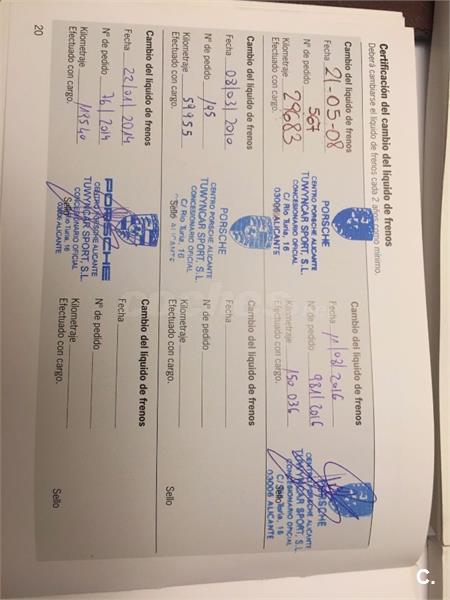 Certificación del cambio del líquido de frenos
Deberá cambiarse el líquido de frenos cada 2 años como mínimo.
Cambio del líquido de frenos
Fecha 21-05-08
Nº de pedido 567
Kilometraje 29683
Efectuado con cargo.
PORSCHE
CENTRO PORSCHE ALICANTE
TUWYNCAR SPORT, S.L.
CONCESIONARIO OFICIAL
C/ Río Turia, 16
03006 ALICANTE
Cambio del líquido de frenos
Fecha 11/03/2016
Nº de pedido 981/2016
Kilometraje 150 036
Efectuado con cargo.
PORSCHE
CENTRO PORSCHE ALICANTE
TUWYNCAR SPORT, S.L.
CONCESIONARIO OFICIAL
C/ Río Turia, 16
Sello
03006 ALICANTE
Cambio del líquido de frenos
Fecha 03/03/2010
Nº de pedido 195
Kilometraje 59955
Efectuado con cargo.
PORSCHE
CENTRO PORSCHE ALICANTE
TUWYNCAR SPORT, S.L.
CONCESIONARIO OFICIAL
C/ Río Turia, 16
Sello ALICANTE
Cambio del líquido de frenos
Fecha
Nº de pedido
Kilometraje
Efectuado con cargo.
Sello
Cambio del líquido de frenos
Fecha 22/01/2014
Nº de pedido 76/2014
Kilometraje 119540
Efectuado con cargo.
PORSCHE
CENTRO PORSCHE ALICANTE
TUWYNCAR SPORT, S.L.
CONCESIONARIO OFICIAL
Sello Turia, 16
03006 ALICANTE
Cambio del líquido de frenos
Fecha
Nº de pedido
Kilometraje
Efectuado con cargo.
Sello
20
C.